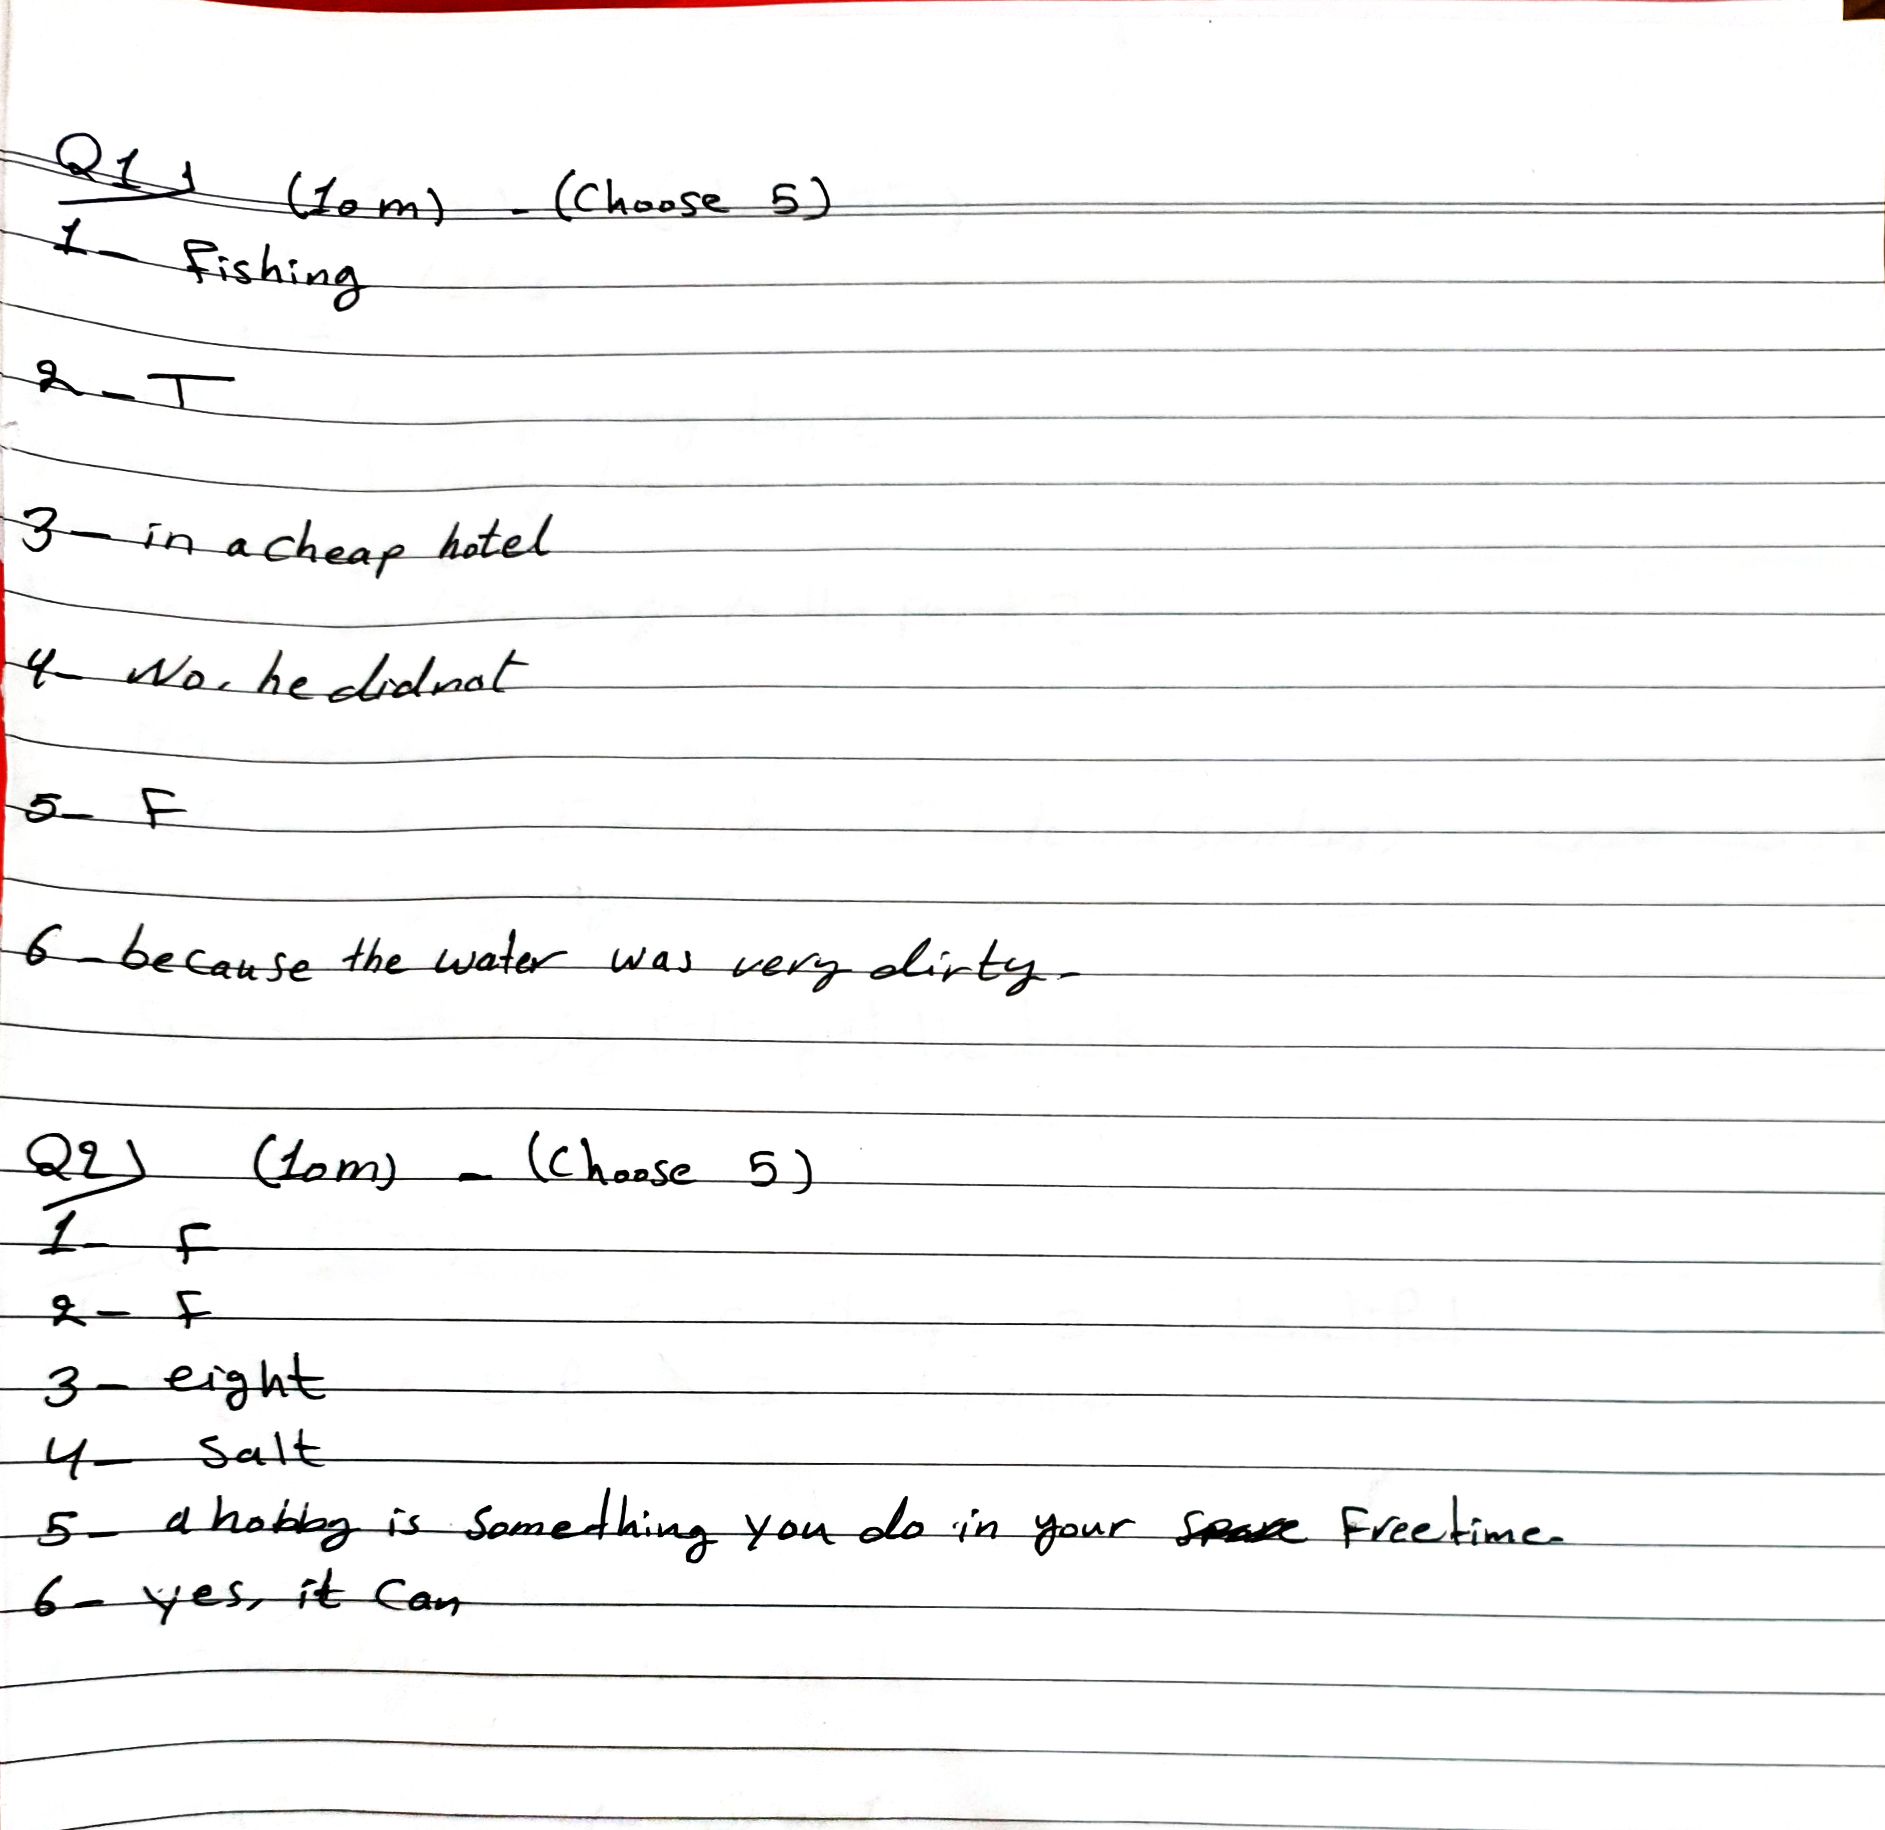 Q1 (10m) - (Choose 5)
1- Fishing
2- T
3- in a cheap hotel
4- No, he didnot
5- F
6- because the water was very dirty.
Q2 (10m) - (Choose 5)
1- F
2- F
3- eight
4- Salt
5- a hobby is something you do in your Free time.
6- yes, it can